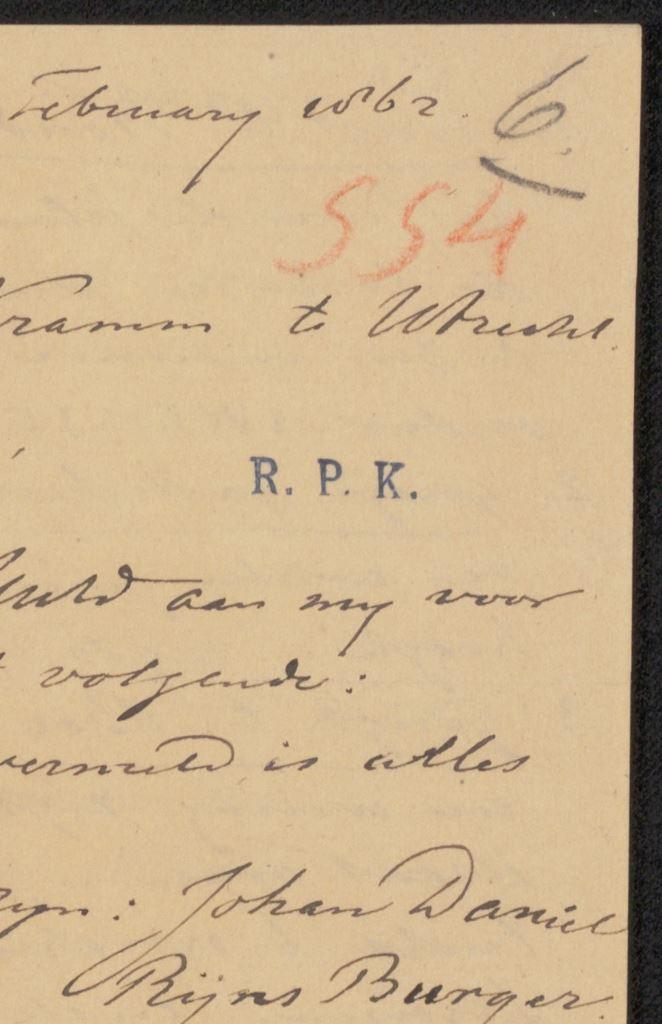 February 1862. 6.
554
Kramm te Utrecht.
R. P. K.
aan my voor
volgende:
vermeld is alles
zyn: Johan Daniel
Rijns Burger.